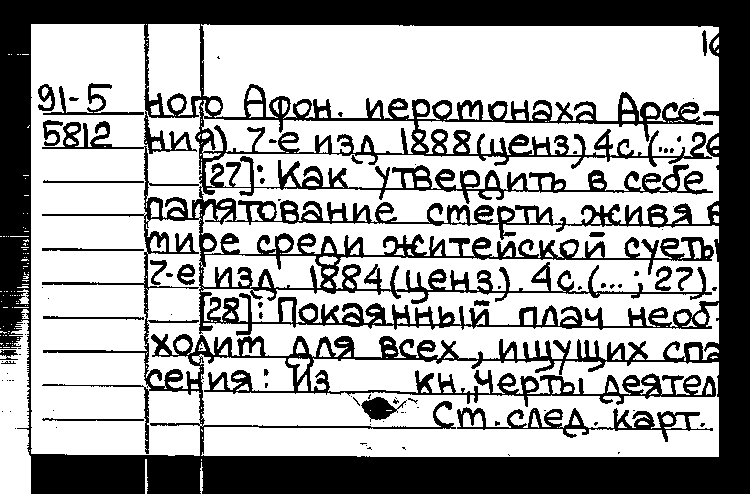 16
91-5 ного Афон. иеромонаха Арсе-
5812 ния). 7-е изд. 1888(ценз.) 4с. (...; 26
[27]: Как утвердить в себе
памятование смерти, живя в
мире среди житейской суеты
7-е изд. 1884(ценз.). 4с. (...; 27).
[28]: Покаянный плач необ-
ходим для всех, ищущих спа
сения: Из кн. „Черты деятел
См. след. карт.